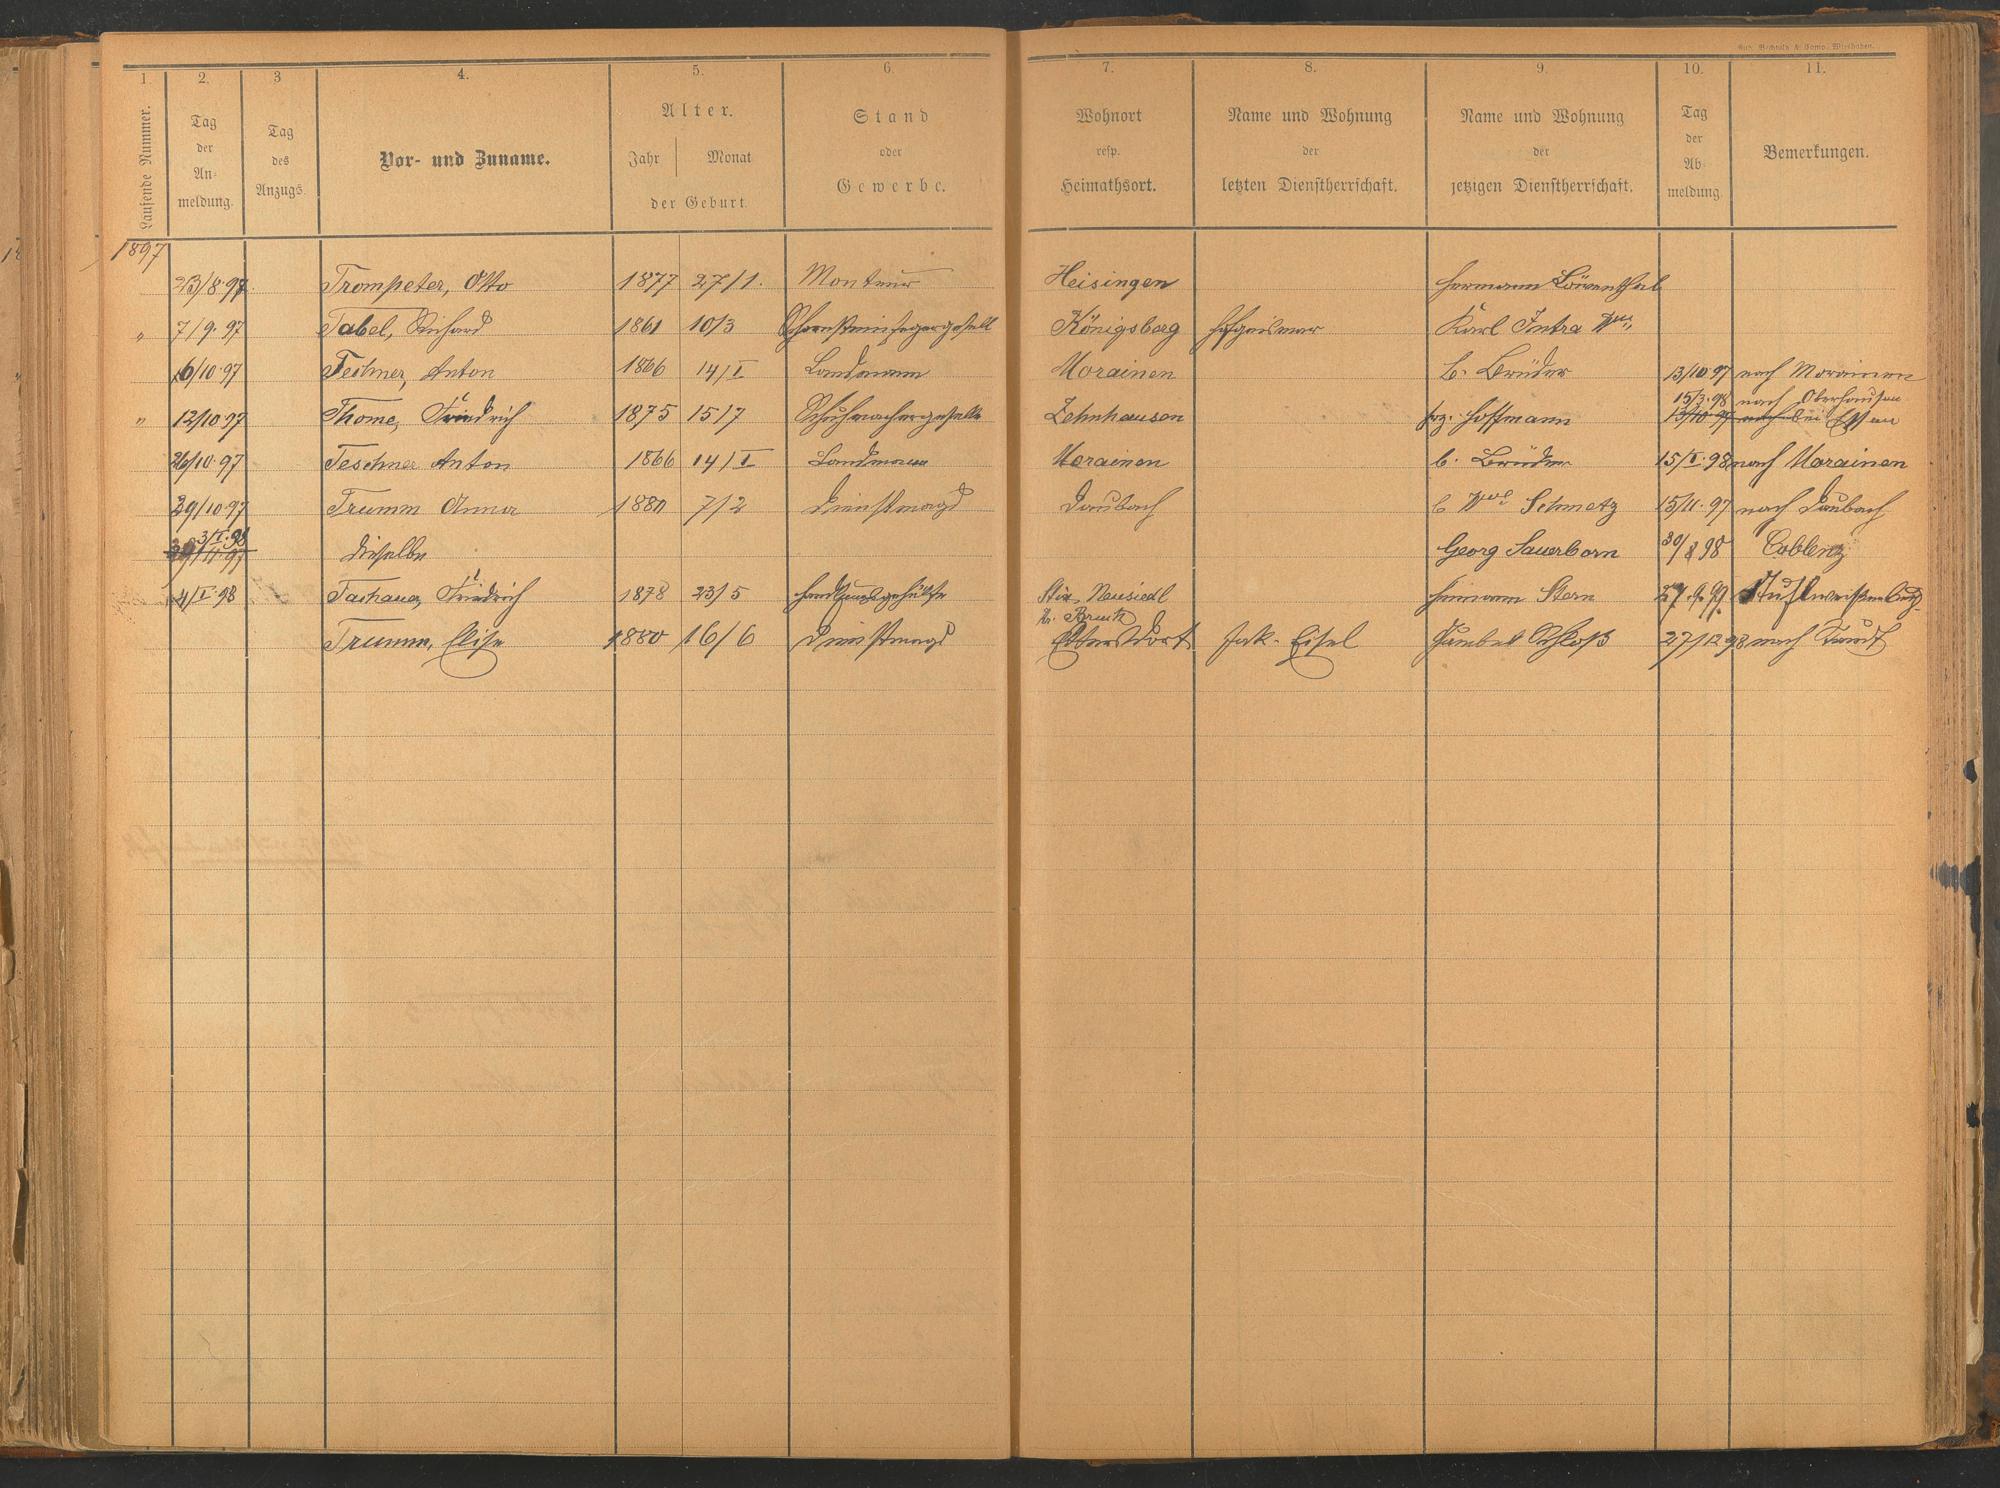 Gus. Bechtold & Comp. Wiesbaden.
1. 2. 3 4. 5. 6. 7. 8. 9. 10. 11.
Laufende Nummer.
Tag der An-meldung.
Tag des Anzugs.
Vor- und Zuname.
Alter.
Jahr Monat
der Geburt.
Stand oder Gewerbe.
Wohnort resp. Heimathsort.
Name und Wohnung der letzten Dienstherrschaft.
Name und Wohnung der jetzigen Dienstherrschaft.
Tag der Ab-meldung.
Bemerkungen.
1897
23/8.97. Trompeter, Otto 1877 27/1. Monteur Heisingen Hermann Löwenthal
" 7/9.97 Tabel, Richard 1861 10/3 Schornsteinfegergesell Königsberg Hofgeismar Karl Intra Wwe
6/10.97 Teschner, Anton 1866 14/I Landmann Morainen b. Brüder 13/10 97 nach Morainen
15/3.98 nach Oberhausen
" 12/10 97 Thome, Friedrich 1875 15/7 Schuhmachergeselle Zehnhausen Hoffmann 13/10.97 nach bei Essen
26/10.97 Teschner Anton 1866 14/I Landmann Morainen b. Brüder 15/I.98 nach Morainen
29/10.97 Trumm Anna 1880 7/2 Dienstmagd Daubach b Wwe Schmetz 15/11.97 nach Daubach
3/I.98
11.97 dieselbe Georg Sauerborn 30/8 98 Coblenz
4/I.98 Tachauer, Friedrich 1878 23/5 Handlungsgehülfe Neusiedl Heimann Stern 27.9.99. Stuhlweissenburg.
Kr. Bruck
Trumm, Elise 1880 16/6 Dienstmagd Jak. Eisel Schloß 27/12 98 nach